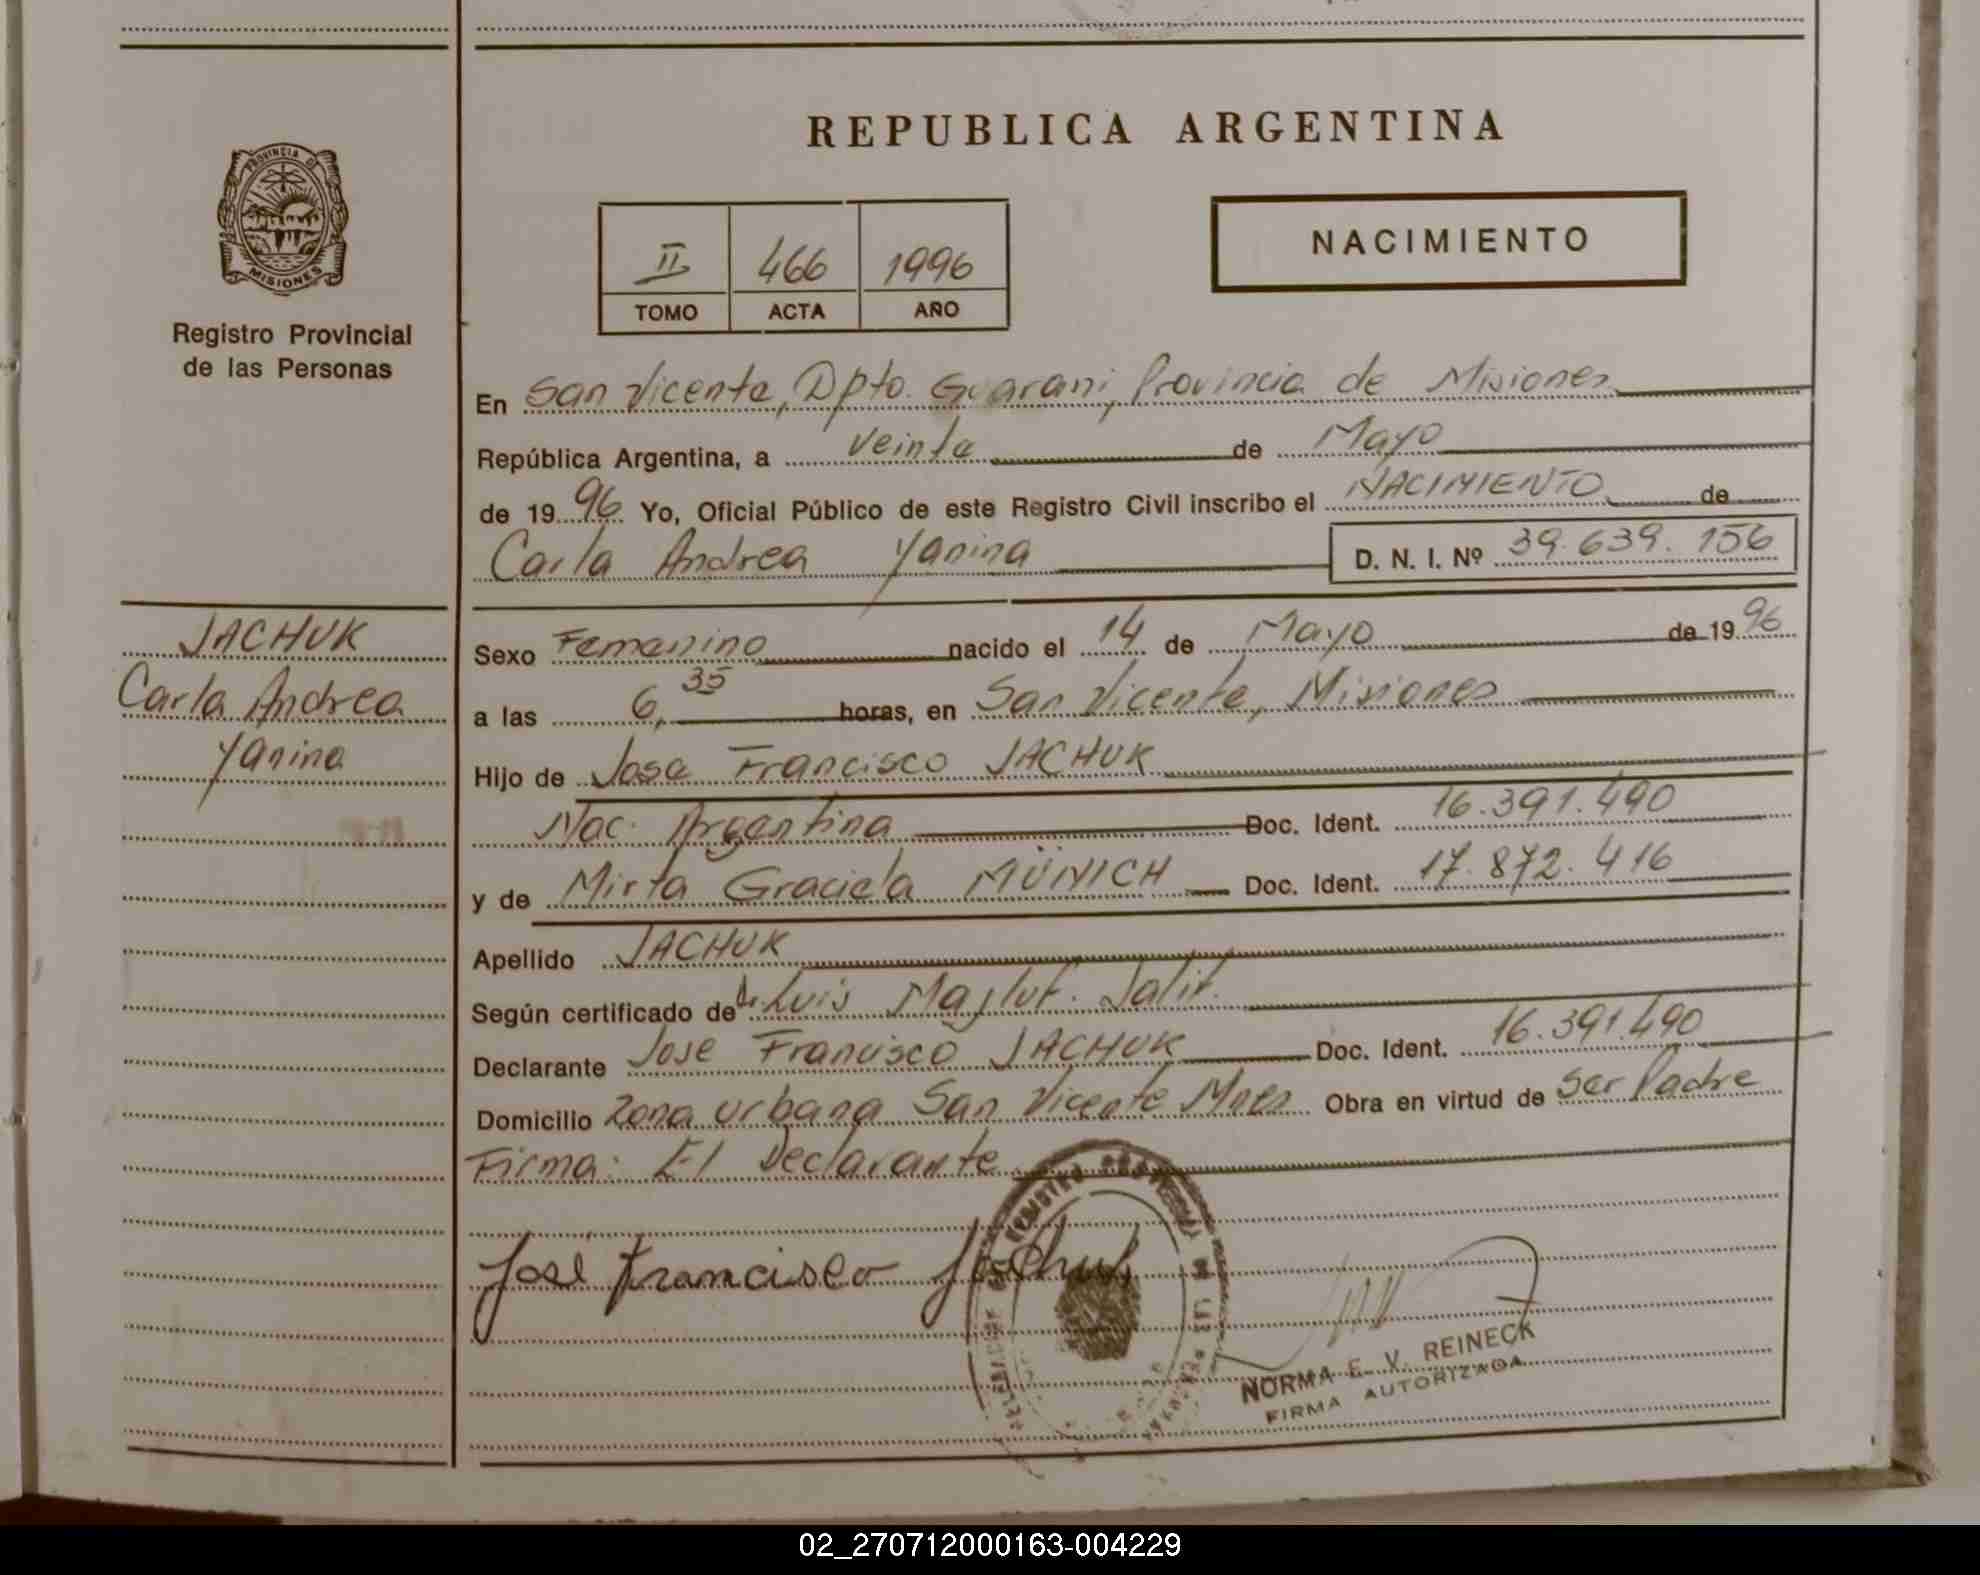 REPUBLICA ARGENTINA
PROVINCIA DE
MISIONES
Registro Provincial
de las Personas
II 466 1996
TOMO ACTA AÑO
NACIMIENTO
En San Vicente, Dpto. Guarani, Provincia de Misiones
República Argentina, a veinte de Mayo
de 1996 Yo, Oficial Público de este Registro Civil inscribo el NACIMIENTO de
Carla Andrea Yanina D. N. I. Nº 39.639.156
JACHUK
Carla Andrea
Yanina
Sexo Femenino nacido el 14 de Mayo de 1996
a las 6,35 horas, en San Vicente, Misiones
Hijo de Jose Francisco JACHUK
Nac. Argentina Doc. Ident. 16.391.490
y de Mirta Graciela MÜNICH Doc. Ident. 17.872.416
Apellido JACHUK
Según certificado de Dr. Luis Jalif.
Declarante Jose Francisco JACHUK Doc. Ident. 16.391.490
Domicilio Zona urbana San Vicente Mnes Obra en virtud de Ser Padre
Firma: El Declarante
José Francisco Jachuk
NORMA E. V. REINECK
FIRMA AUTORIZADA
02_270712000163-004229